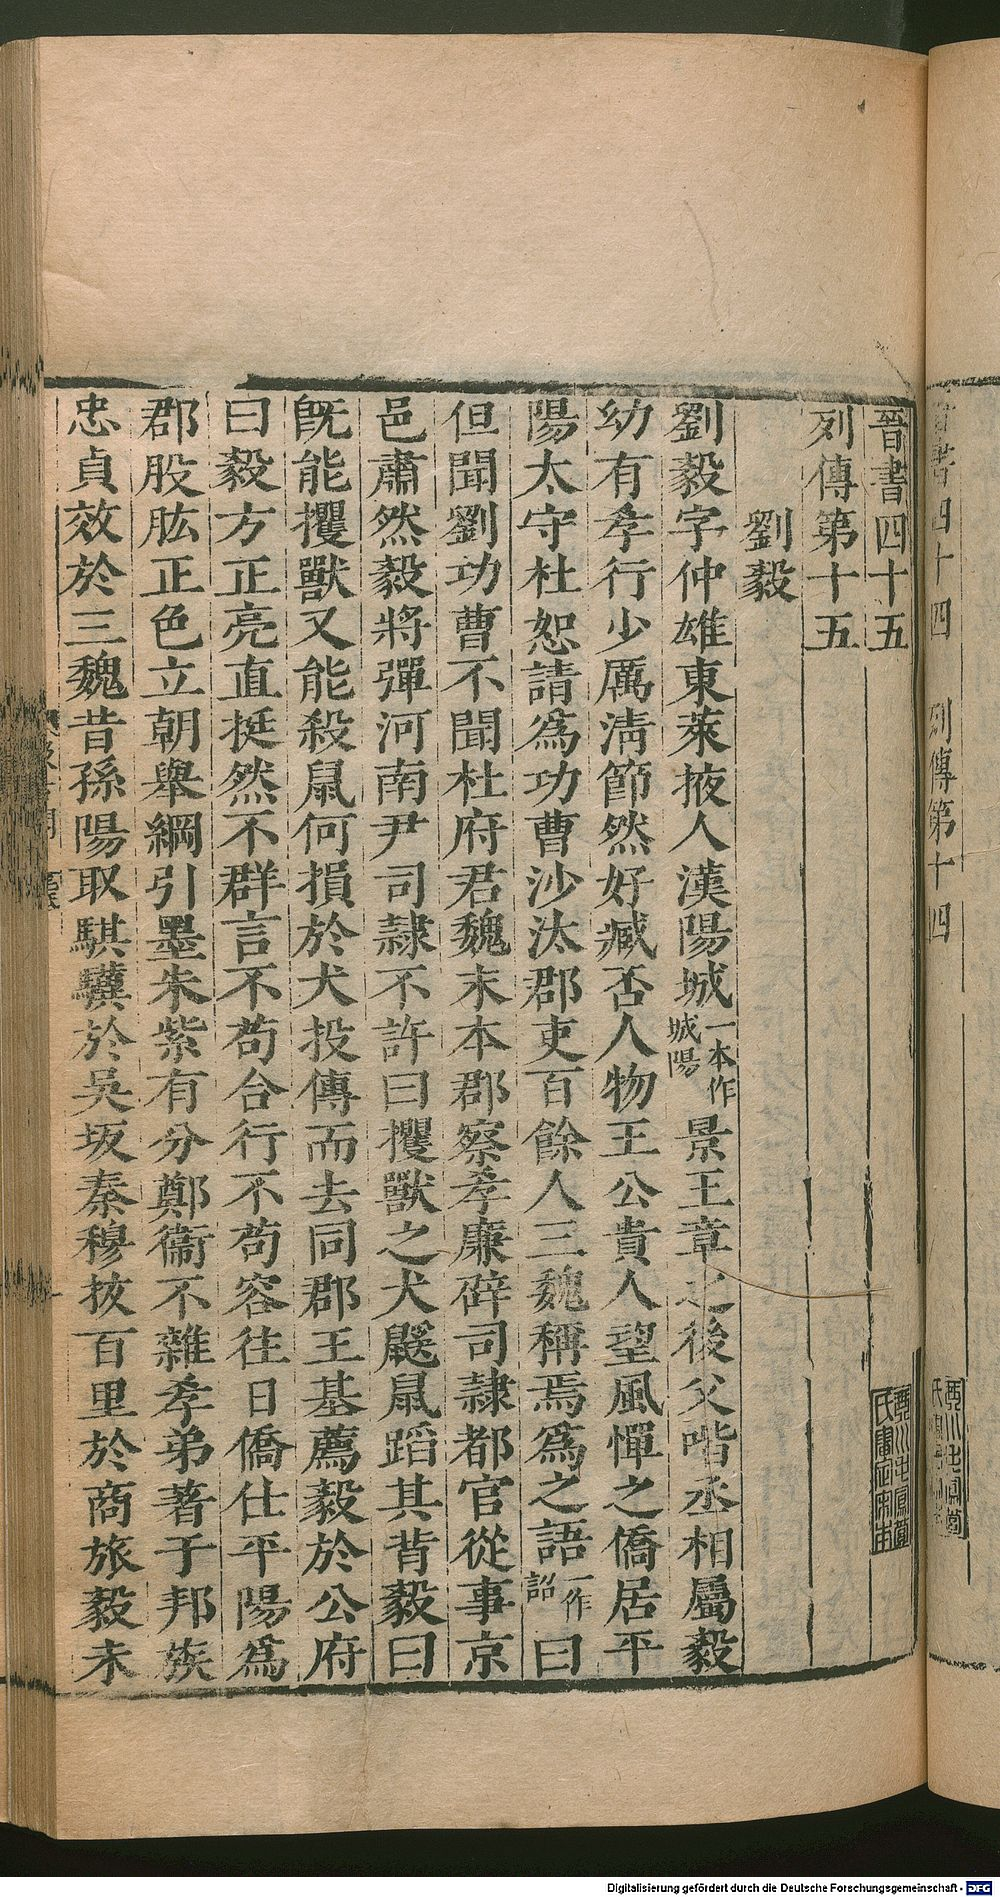 晉書四十五
列傳第十五
劉毅
劉毅字仲雄東萊掖人漢陽城一本作城陽景王章之後父喈丞相屬毅
幼有孝行少厲淸節然好臧否人物王公貴人望風憚之僑居平
陽太守杜恕請爲功曹沙汰郡吏百餘人三魏稱焉爲之語一作詔曰
但聞劉功曹不聞杜府君魏末本郡察孝廉辟司隸都官從事京
邑肅然毅將彈河南尹司隸不許曰攫獸之犬鼷鼠蹈其背毅曰
旣能攫獸又能殺鼠何損於犬投傳而去同郡王基薦毅於公府
曰毅方正亮直挺然不群言不苟合行不苟容往日僑仕平陽爲
郡股肱正色立朝舉綱引墨朱紫有分鄭衞不雜孝弟著于邦族
忠貞效於三魏昔孫陽取騏驥於吳坂秦穆拔百里於商旅毅未
書四十四 列傳第十四
Digitalisierung gefördert durch die Deutsche Forschungsgemeinschaft - DFG